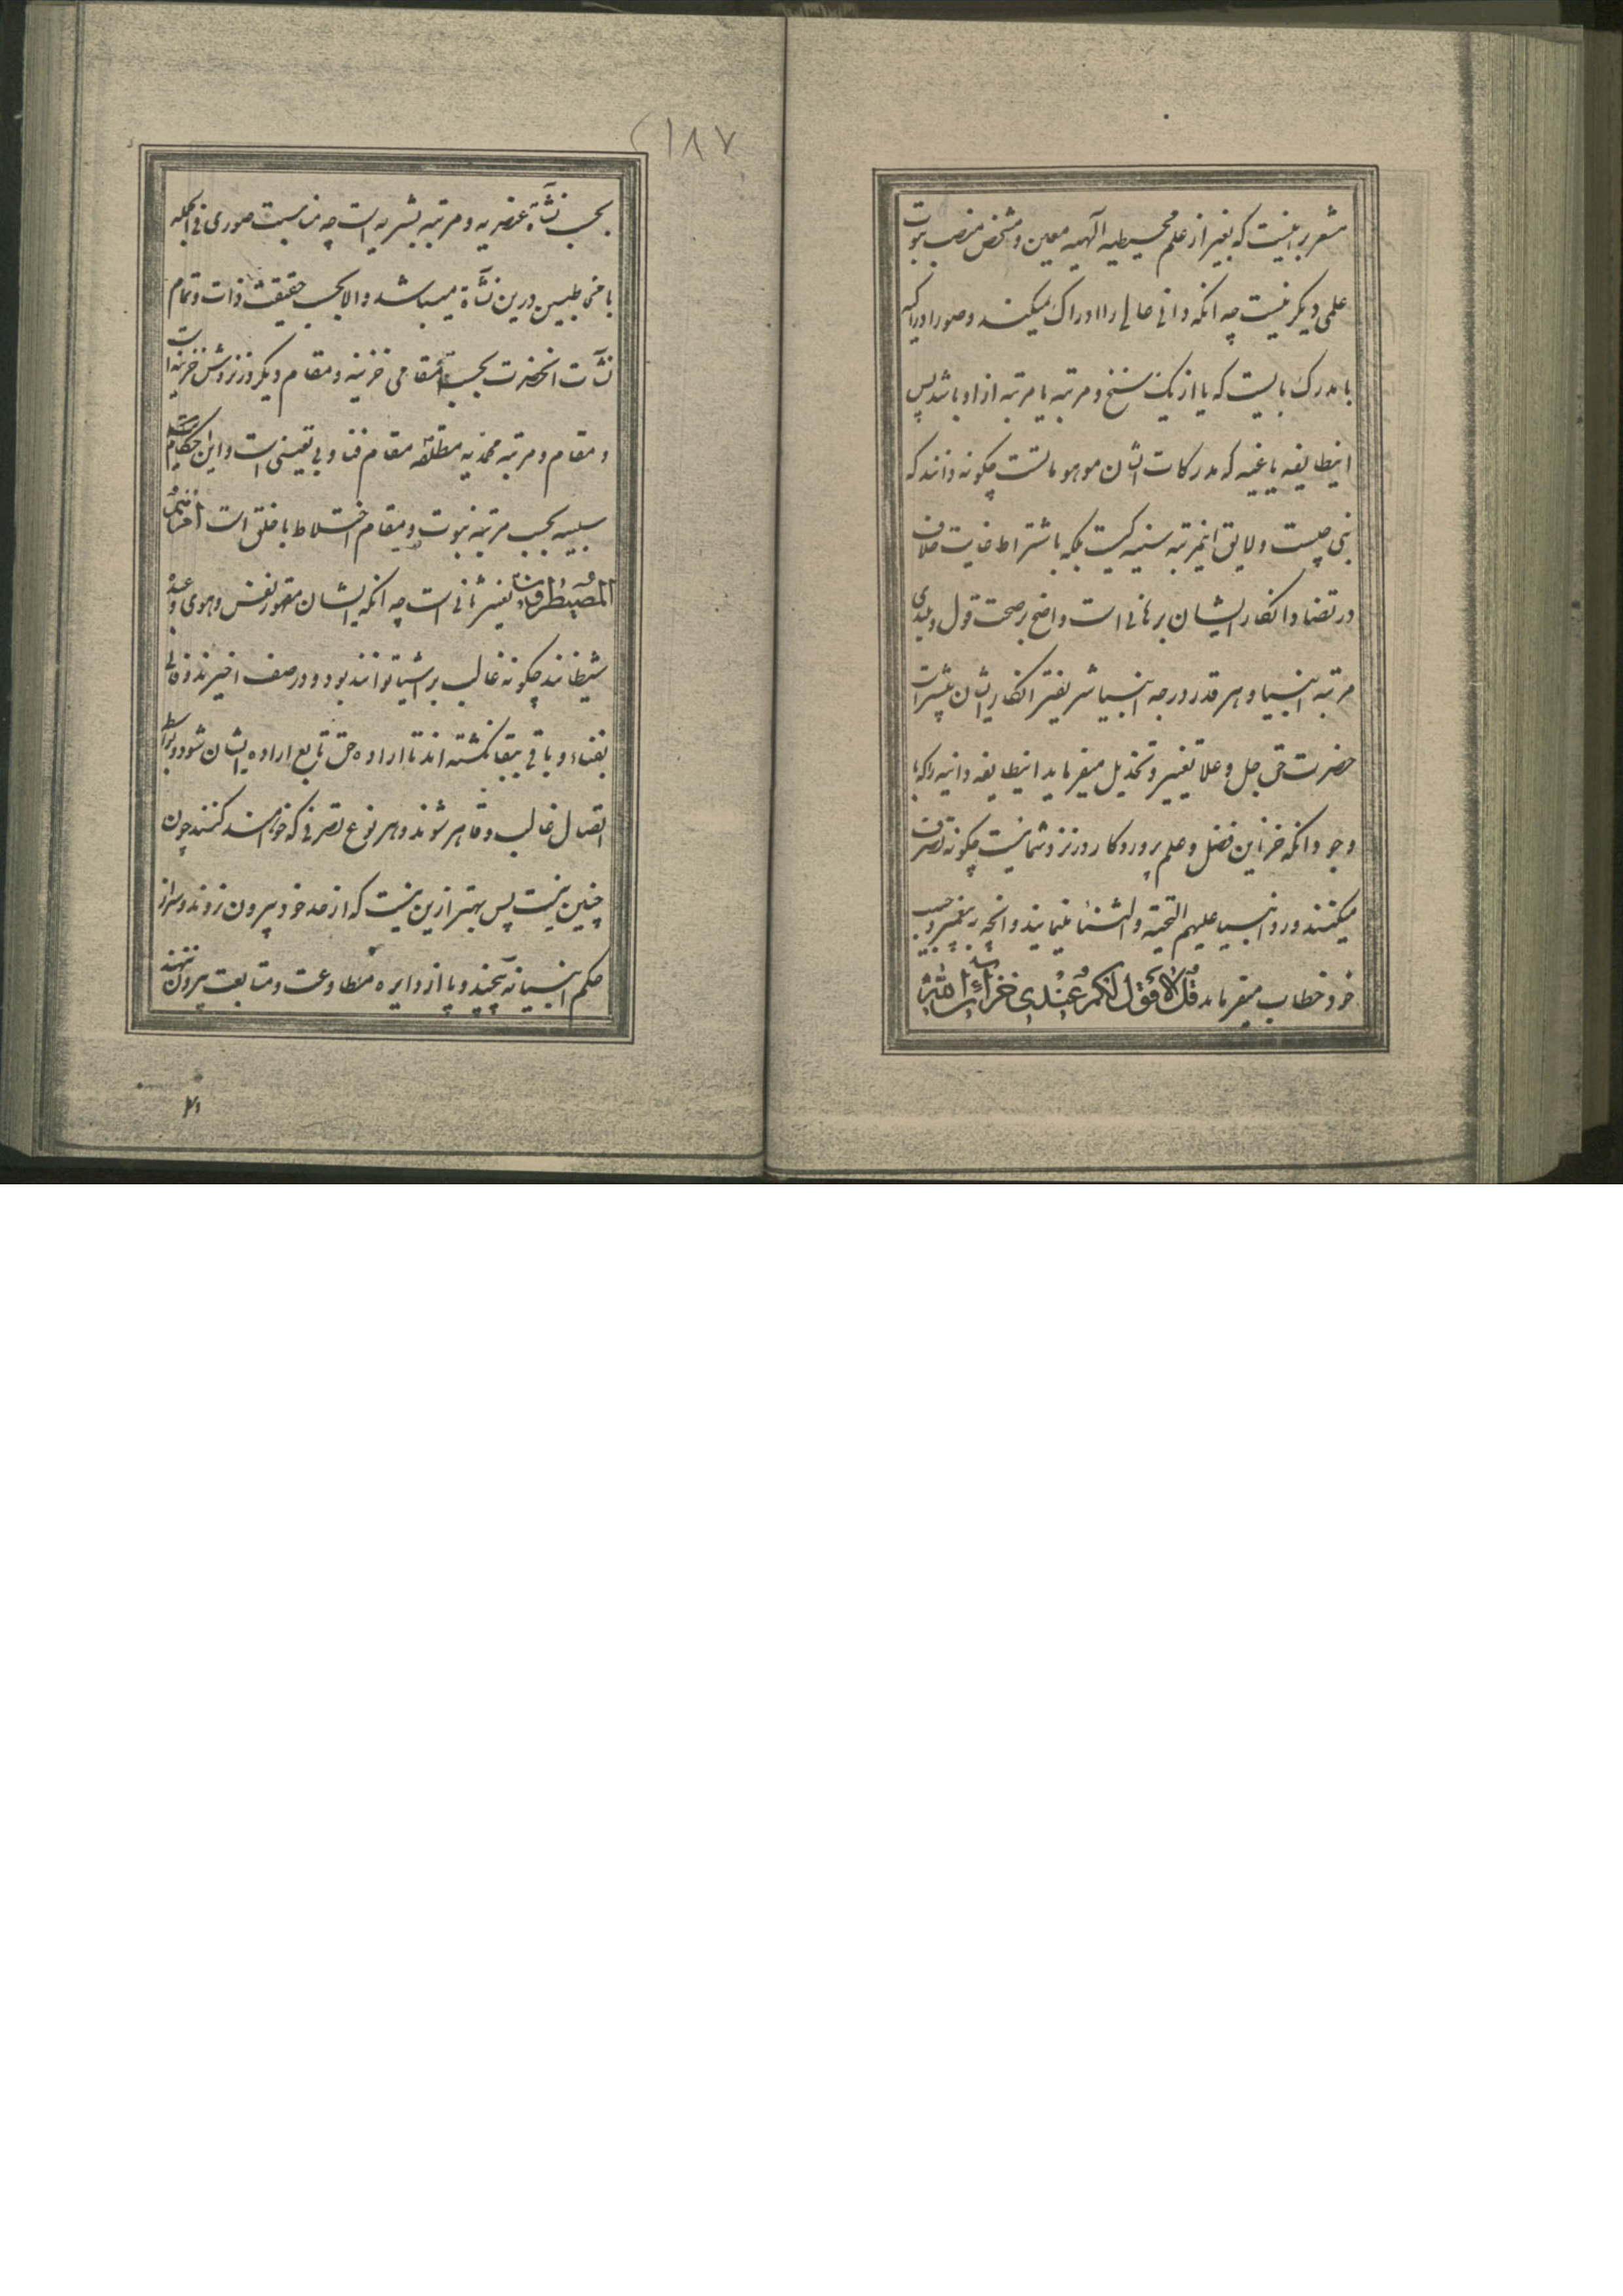 مشعر براینست که بغیر از علم محیطیه آلهیه معین و مشخص منصب نبوت
علمی دیگر نیست چه انکه دانی عالی را ادراک میکنند و صورا دراکیه
با مدرک بایست که یا از یک سنخ و مرتبه یا مرتبه از او باشد پس
اینطایفه یاغیه که مدرکات ایشان موهوماتست چکونه دانند که
نبی چیست و لایق اینمرتبه سنیه کیست بلکه باشتراط غایت خلاف
در تضاد انکار ایشان برهانی است واضح بر صحت قول و بلندی
مرتبه انبیا و هر قدر درجه انبیا شریفتر انکار ایشان بیشتر است
حضرت حق جل و علا تغییر و تخذیل میفرماید اینطایفه دانیه را که با
وجود انکه خزاین فضل و علم پروردکار در نزد شما نیست چکونه تصرف
میکنند و رد انبیا علیهم التحیة و الثناء مینمایند و انچه به پیغمبر و حبیب
خود خطاب میفرماید قُل لا اَقُولُ لَکُم عِندِی خَزائِنُ اللهِ
۱۸۷
بحسب نشأة عنصریه و مرتبه بشریه است چه مناسبت صوری فی الجمله
با مخاطبین درین نشأة میباشد و الا بحسب حقیقت ذات و تمام
نشآت انحضرت بحسب مقامی خزینه و مقام دیکر در نزدش خزینه است
و مقام و مرتبه محمدیه مطلقه مقام فنا و بی تعینی است و این احکام
سلبیه بحسب مرتبه نبوت و مقام اختلاط با خلق است اَم هُمُ
المُصَیطِرُونَ تفسیر ثانی است چه انکه ایشان مقهور نفس و هوی و عبد
شیطانند چکونه غالب بر اشیا توانند بود و در صف اخیرند و فانی
بفناء و باقی ببقا نکشته اند تا اراده حق تابع اراده ایشان شود و بواسطه
اتصال غالب و قاهر شوند و هر نوع تصرفی که خواهند کنند چون
چنین نیست پس بهتر ازین نیست که از حد خود بیرون نروند و سر از
حکم انبیا نه پیچند و پا از دایره مطاوعت و متابعت بیرون ننهند